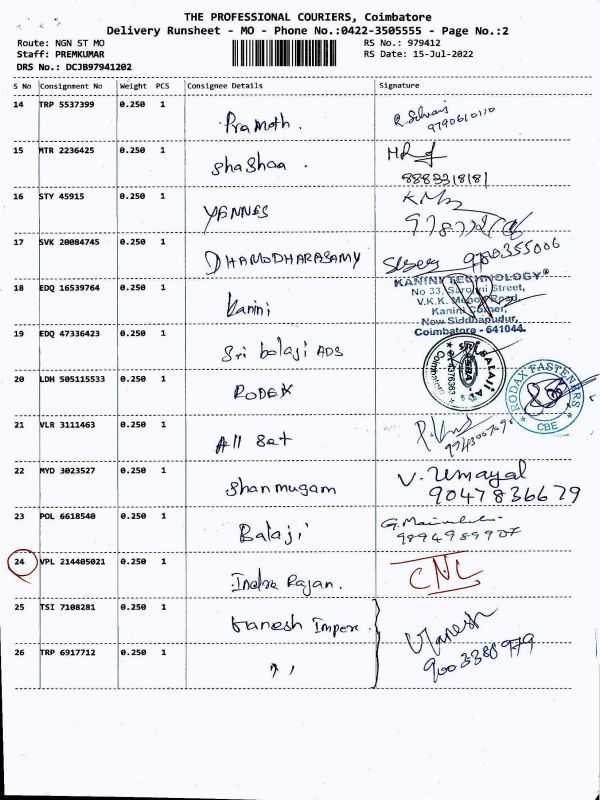 THE PROFESSIONAL COURIERS, Coimbatore
Delivery Runsheet - MO - Phone No.:0422-3505555 - Page No.:2
Route: NGN ST MO RS No.: 979412
Staff: PREMKUMAR RS Date: 15-Jul-2022
DRS No.: DCJB97941202
S No Consignment No Weight PCS Consignee Details Signature
14 TRP 5537399 0.250 1 Pramoth. 9790610110
15 MTR 2236425 0.250 1 ShaShaa . 8883318181
16 STY 45915 0.250 1 YENNES
17 SVK 20084745 0.250 1 DHAMODHARASAMY 9780355006
18 EDQ 16539764 0.250 1 Kanini
KANINI TECHNOLOGY
No 33, Sarojini Street,
V.K.K. Menon Road,
Kanini Corner,
New Siddhapudur,
Coimbatore - 641044.
19 EDQ 47336423 0.250 1 Sri balaji ADS
SRI BALAJI
Coimbatore
20 LDH 505115533 0.250 1 RODEX
RODAX FASTENERS
CBE
21 VLR 3111463 0.250 1 All Set
22 MYD 3023527 0.250 1 Shanmugam V. Umayal
9047836679
23 POL 6618540 0.250 1 Balaji
9894989907
24 VPL 214405021 0.250 1 Indra Rajan. CNL
25 TSI 7108281 0.250 1 Ganesh Impex
26 TRP 6917712 0.250 1 " Ganesh
9003380979